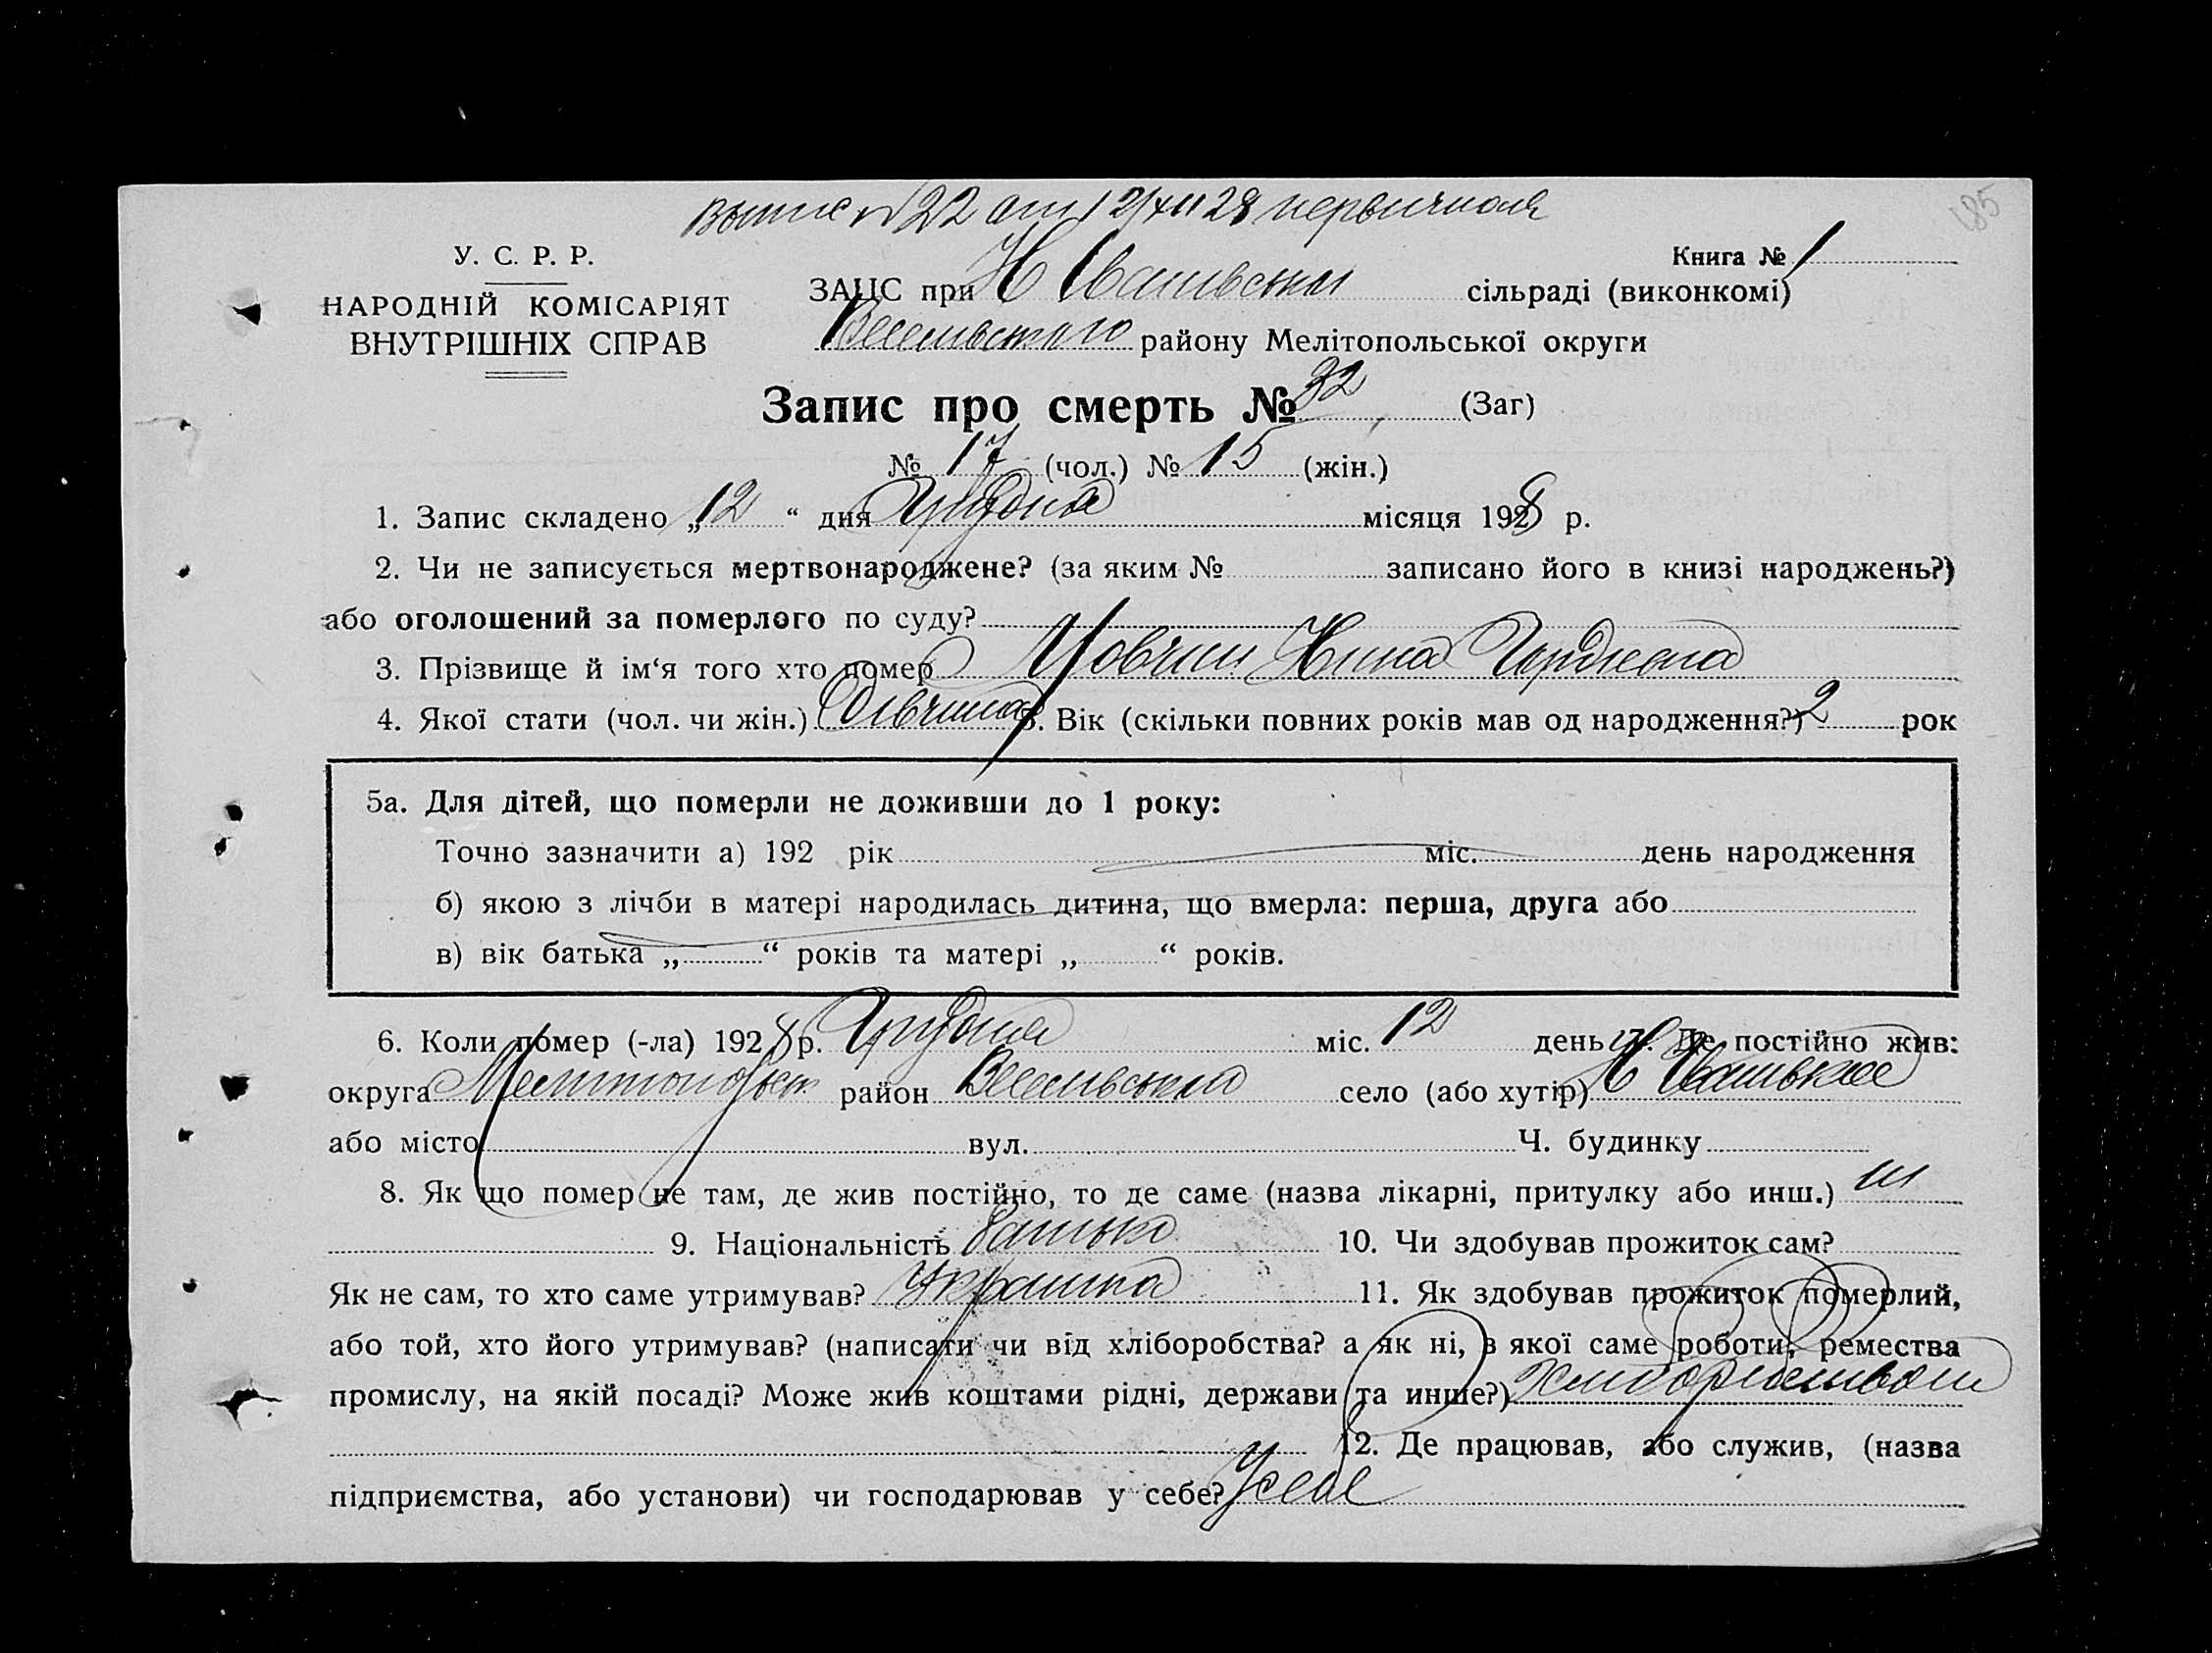 Выпис №22 от 12/XII 28 первичная
185
У. С. Р. Р.
НАРОДНІЙ КОМІСАРІЯТ
ВНУТРІШНІХ СПРАВ
Книга № 1
ЗАЦС при Н сільраді (виконкомі)
району Мелітопольської округи
Запис про смерть № 32 (Заг)
№ 17 (чол.) № 15 (жін.)
1. Запис складено „12“ дня Грудня місяця 1928 р.
2. Чи не записується мертвонароджене? (за яким № записано його в книзі народжень?)
або оголошений за померлого по суду?
3. Прізвище й ім‘я того хто помер Мовчан Нина
4. Якої стати (чол. чи жін.) дівчина 5. Вік (скільки повних років мав од народження?) 2 рок
5а. Для дітей, що померли не доживши до 1 року:
Точно зазначити а) 192 рік міс. день народження
б) якою з лічби в матері народилась дитина, що вмерла: перша, друга або
в) вік батька „ “ років та матері „ “ років.
6. Коли помер (-ла) 1928 р. Грудня міс. 12 день 7. Де постійно жив:
округа Мелитопольск район село (або хутір) Н
або місто вул. Ч. будинку
8. Як що помер не там, де жив постійно, то де саме (назва лікарні, притулку або инш.)
9. Національність 10. Чи здобував прожиток сам?
Як не сам, то хто саме утримував? 11. Як здобував прожиток померлий,
або той, хто його утримував? (написати чи від хліборобства? а як ні, з якої саме роботи, ремества
промислу, на якій посаді? Може жив коштами рідні, держави та инше?)
12. Де працював, або служив, (назва
підприємства, або установи) чи господарював у себе? У себе